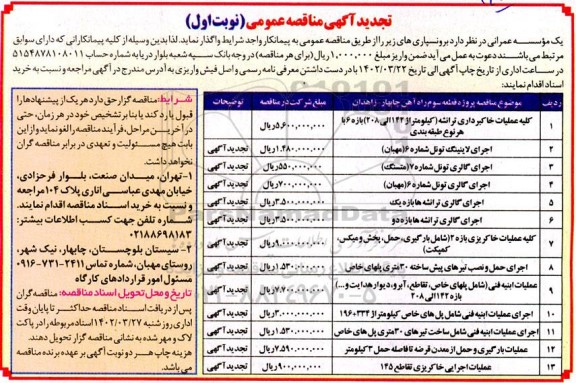 تجدید آگهی مناقصه عمومی (نوبت اول)
یک مؤسسه عمرانی در نظر دارد برونسپاری های زیر را از طریق مناقصه عمومی به پیمانکار واجد شرایط واگذار نماید. لذا بدین وسیله از کلیه پیمانکارانی که دارای سوابق
مرتبط می باشند دعوت به عمل می آید ضمن واریز مبلغ ۱,۰۰۰,۰۰۰ ریال (برای هر مناقصه) در وجه بانک سپه شعبه بلوار در یا به شماره حساب ۵۱۵۴۸۷۸۱۰۸۰۱۱
در ساعات اداری از تاریخ چاپ آگهی الی تاریخ ۱۴۰۲/۰۳/۲۲ با در دست داشتن معرفی نامه رسمی و اصل فیش واریزی به آدرس مندرج در آگهی مراجعه و نسبت به خرید
اسناد اقدام نمایند:
ردیف موضوع مناقصه پروژه قطعه سوم راه آهن چابهار - زاهدان مبلغ شرکت در مناقصه توضیحات
۱ کلیه عملیات خاکبرداری ترانشه (کیلومتراژ ۱۴۴ الی ۲۰۸) بازه ۶ با هر نوع طبقه بندی ۵,۶۰۰,۰۰۰,۰۰۰ ریال تجدید آگهی
۲ اجرای لاینینگ تونل شماره ۶ (مهبان) ۱,۴۸۰,۰۰۰,۰۰۰ ریال تجدید آگهی
۳ اجرای گالری تونل شماره ۷ (متسنگ) ۵۵۰,۰۰۰,۰۰۰ ریال تجدید آگهی
۴ اجرای گالری تونل شماره ۶ (مهبان) ۷۰۰,۰۰۰,۰۰۰ ریال تجدید آگهی
۵ اجرای گالری ترانشه ها بازه یک ۳,۵۰۰,۰۰۰,۰۰۰ ریال تجدید آگهی
۶ اجرای گالری ترانشه ها بازه دو ۳,۵۰۰,۰۰۰,۰۰۰ ریال تجدید آگهی
۷ کلیه عملیات خاکریزی بازه ۲ (شامل بارگیری، حمل، پخش و میکس، کمپکت) ۹,۰۰۰,۰۰۰,۰۰۰ ریال تجدید آگهی
۸ اجرای حمل و نصب تیرهای پیش ساخته ۳۰ متری پلهای خاص ۱,۵۳۰,۰۰۰,۰۰۰ ریال تجدید آگهی
۹ عملیات ابنیه فنی (شامل پلهای خاص، تقاطع، آبرو، دیوار هدایت و...) بازه ۱۴۲ الی ۲۰۸ ۷,۷۰۰,۰۰۰,۰۰۰ ریال تجدید آگهی
۱۰ اجرای عملیات ابنیه فنی شامل پل های خاص کیلومتراژ ۱۹۶+۳۳۴ ۳,۰۰۰,۰۰۰,۰۰۰ ریال تجدید آگهی
۱۱ اجرای عملیات ابنیه فنی شامل ساخت تیرهای ۳۰ متری پل های خاص ۱,۵۳۰,۰۰۰,۰۰۰ ریال تجدید آگهی
۱۲ عملیات بارگیری و حمل از معدن قرضه تا فاصله حمل ۳ کیلومتر ۷,۵۹۰,۰۰۰,۰۰۰ ریال تجدید آگهی
۱۳ عملیات اجرایی خاکریزی تقاطع ۱۴۵ ۹۰۰,۰۰۰,۰۰۰ ریال تجدید آگهی
شرایط: مناقصه گزار حق دارد هر یک از پیشنهادها را
قبول یا رد کند یا بنا بر تشخیص خود در هر زمان، حتی
در آخرین مراحل، فرآیند مناقصه را لغو نماید و از این
بابت هیچ مسئولیت و تعهدی در برابر مناقصه گران
نخواهد داشت.
۱- تهران، میدان صنعت، بلوار فرحزادی،
خیابان مهدی عباسی اناری پلاک ۱۰۴ مراجعه
و نسبت به خرید اسناد مناقصه اقدام نمایند.
شماره تلفن جهت کسب اطلاعات بیشتر:
۰۲۱۸۸۶۹۸۱۸۳
۲- سیستان بلوچستان، چابهار، نیک شهر،
روستای مهبان، شماره تماس ۲۴۱۱-۷۳۱-۰۹۱۶
مسئول امور قراردادهای کارگاه
تاریخ و محل تحویل اسناد مناقصه: مناقصه گران
پس از دریافت اسناد مناقصه حداکثر تا پایان وقت
اداری روز شنبه ۱۴۰۲/۰۳/۲۷ اسناد مربوطه را در پاکت
لاک و مهر شده به نشانی مناقصه گزار تحویل دهند.
هزینه چاپ هر دو نوبت آگهی بر عهده برنده مناقصه
می باشد.